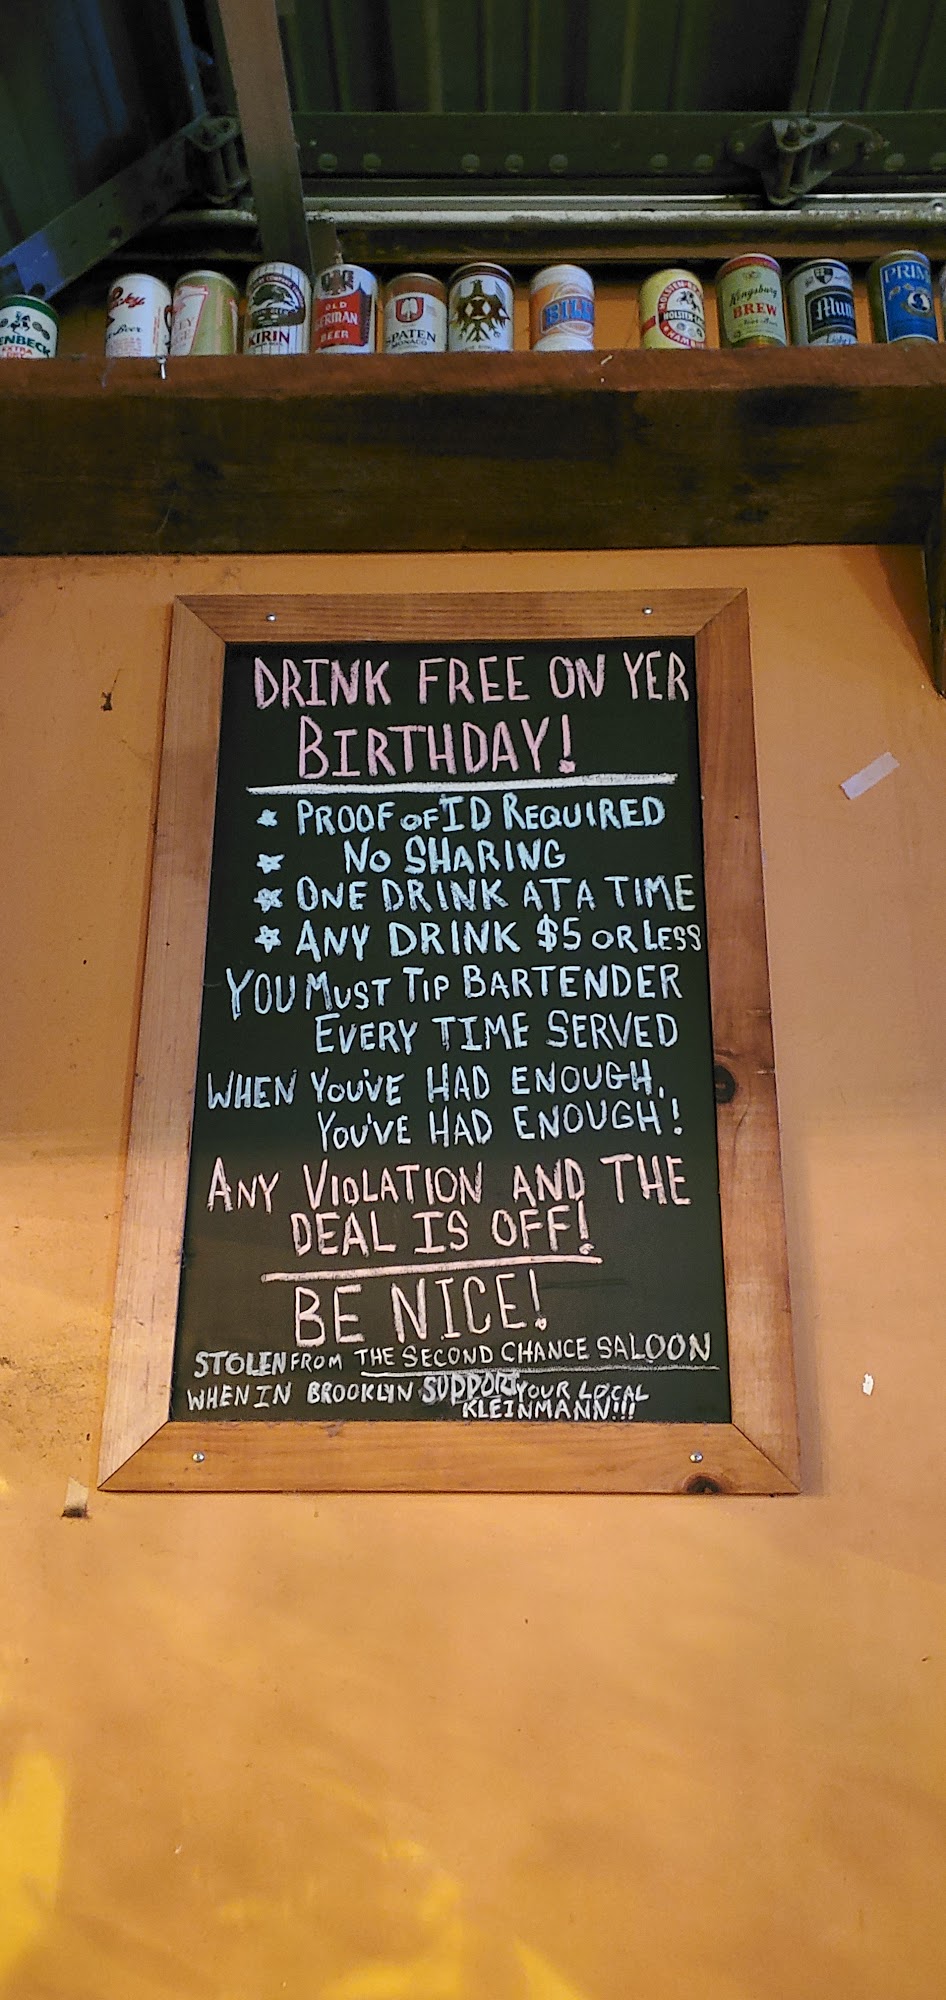 Beer
KIRIN
OLD
GERMAN
BEER
SPATEN
HOLSTEN
Kingsbury
BREW
DRINK FREE ON YER
BIRTHDAY!
PROOF OF ID REQUIRED
NO SHARING
ONE DRINK AT A TIME
ANY DRINK $5 OR LESS
YOU MUST TIP BARTENDER
EVERY TIME SERVED
WHEN YOU'VE HAD ENOUGH,
YOU'VE HAD ENOUGH!
ANY VIOLATION AND THE
DEAL IS OFF!
BE NICE!
STOLEN FROM THE SECOND CHANCE SALOON
WHEN IN BROOKLYN SUPPORT YOUR LOCAL
KLEINMANN!!!